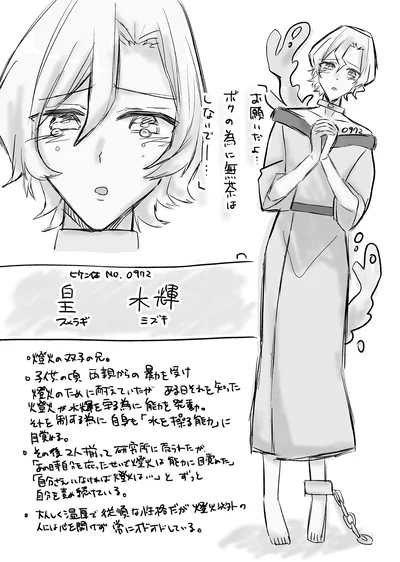 お願いだよ…
ボクの為に無茶は
しないで――…
0972
ヒケン体 NO. 0972
皇 水輝
スメラギ ミズキ
○燈火の双子の兄。
○子供の頃 両親からの暴力を受け
燈火のために耐えていたが ある日それを知った
燈火が水輝を守る為に能力を発動。
それを制する為に自身も「水を操る能力」に
目覚める。
○その後 2人揃って研究所に売られたが
「あの時自分を庇ったせいで燈火は能力に目覚めた」
「自分さえいなければ燈火は…」と ずっと
自分を責め続けている。
○大人しく温厚で従順な性格だが 燈火以外の
人には心を開けず 常にオドオドしている。